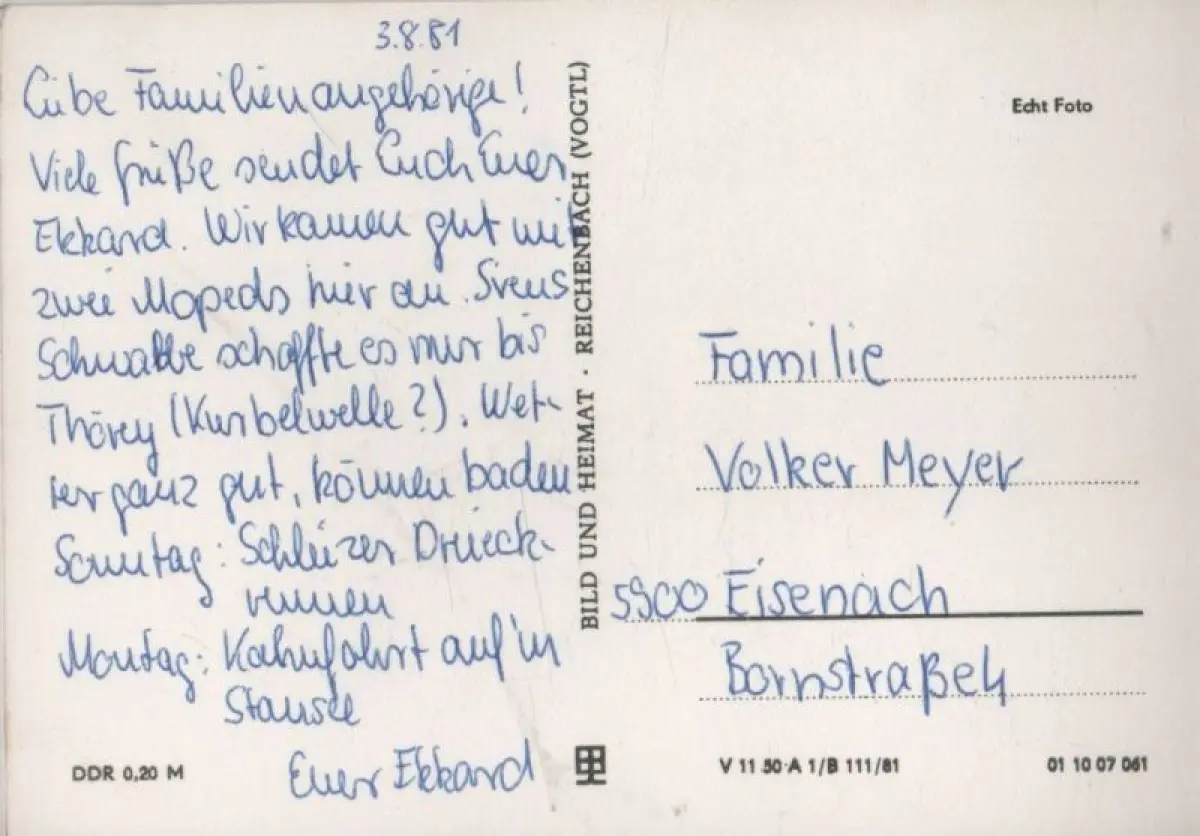 3.8.81
Liebe Familienangehörige!
Viele Grüße sendet Euch Euer
Ekkard. Wir kamen gut mit
zwei Mopeds hier an. Svens
Schwalbe schaffte es nur bis
Thörey (Kurbelwelle?). Wet-
ter ganz gut, können baden
Sonntag: Schleizer Dreieck-
rennen
Montag: Kahnfahrt auf'm
Stausee
Euer Ekkard
DDR 0,20 M
BILD UND HEIMAT · REICHENBACH (VOGTL)
Echt Foto
Familie
Volker Meyer
5900 Eisenach
Bornstraße 4
V 11 50·A 1/B 111/81
01 10 07 061